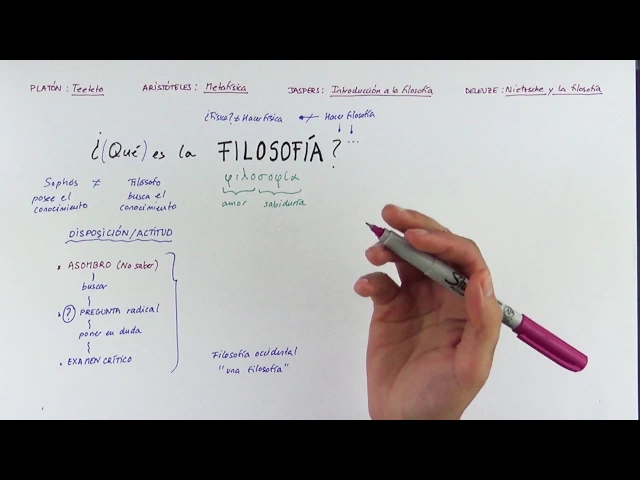 PLATÓN: Teeteto ARISTÓTELES: Metafísica JASPERS: Introducción a la filosofía DELEUZE: Nietzsche y la filosofía
¿Física? ≠ Hacer física ↚ Hacer filosofía
...
¿(Qué) es la FILOSOFÍA?
φιλοσοφία
amor sabiduría
Sophós ≠ Filósofo
posee el conocimiento busca el conocimiento
DISPOSICIÓN/ACTITUD
• ASOMBRO (No saber)
buscar
• ? PREGUNTA radical
poner en duda
• EXAMEN CRÍTICO
Filosofía occidental
"una filosofía"